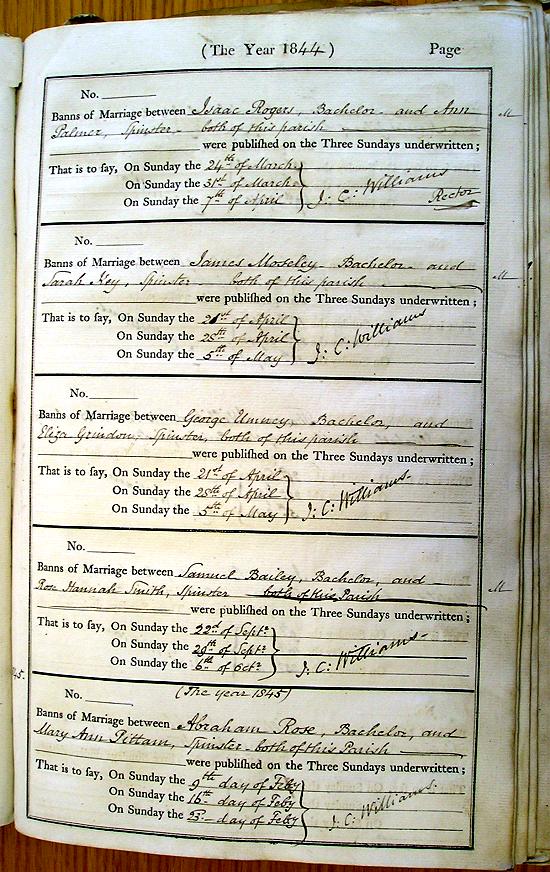 (The Year 1844) Page
No.
Banns of Marriage between Isaac Rogers, Bachelor and Ann M
Palmer, Spinster both of this parish
were published on the Three Sundays underwritten;
That is to say, On Sunday the 24th of March
On Sunday the 31st of March J: C: Williams
On Sunday the 7th of April Rector
No.
Banns of Marriage between James Moseley Bachelor and
Sarah Key, Spinster both of this parish M
were published on the Three Sundays underwritten;
That is to say, On Sunday the 21st of April
On Sunday the 28th of April J: C: Williams
On Sunday the 5th of May
No.
Banns of Marriage between George Umney, Bachelor, and
Eliza Grindon, Spinster, both of this parish
were published on the Three Sundays underwritten;
That is to say, On Sunday the 21st of April
On Sunday the 28th of April J: C: Williams
On Sunday the 5th of May
No.
Banns of Marriage between Samuel Bailey, Bachelor, and
Rose Hannah Smith, Spinster both of this Parish M
were published on the Three Sundays underwritten;
That is to say, On Sunday the 22d of Septr
On Sunday the 29th of Septr
On Sunday the 6th of Octr J: C: Williams
No. (The year 1845)
Banns of Marriage between Abraham Rose, Bachelor, and
Mary Ann Pittam, Spinster both of this Parish
were published on the Three Sundays underwritten;
That is to say, On Sunday the 9th day of Feby
On Sunday the 16th day of Feby
On Sunday the 23 day of Feby J: C: Williams